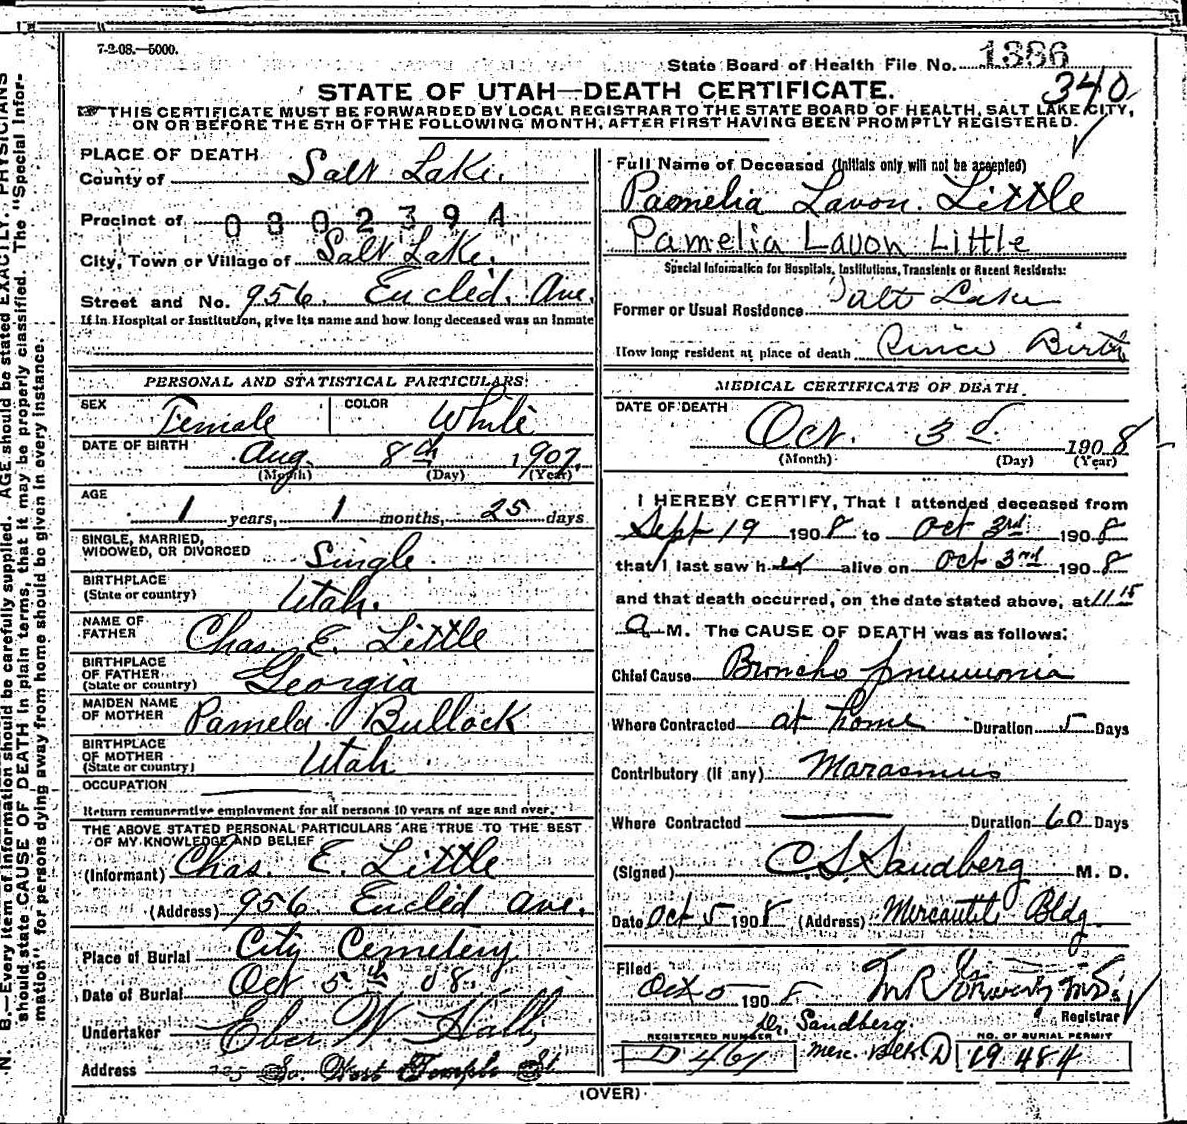 7-2-08.—5000.
State Board of Health File No. 1386
340
STATE OF UTAH—DEATH CERTIFICATE.
THIS CERTIFICATE MUST BE FORWARDED BY LOCAL REGISTRAR TO THE STATE BOARD OF HEALTH, SALT LAKE CITY,
ON OR BEFORE THE 5TH OF THE FOLLOWING MONTH, AFTER FIRST HAVING BEEN PROMPTLY REGISTERED.
PLACE OF DEATH
County of Salt Lake.
Precinct of 0302394
City, Town or Village of Salt Lake.
Street and No. 956. Euclid. Ave.
If in Hospital or Institution, give its name and how long deceased was an inmate
PERSONAL AND STATISTICAL PARTICULARS
SEX Female COLOR White
DATE OF BIRTH Aug. 8th 1907.
(Month) (Day) (Year)
AGE
1 years, 1 months, 25 days
SINGLE, MARRIED,
WIDOWED, OR DIVORCED Single.
BIRTHPLACE
(State or country) Utah.
NAME OF
FATHER Chas. E. Little
BIRTHPLACE
OF FATHER
(State or country) Georgia
MAIDEN NAME
OF MOTHER Pamela Bullock
BIRTHPLACE
OF MOTHER
(State or country) Utah
OCCUPATION
Return remunerative employment for all persons 10 years of age and over.
THE ABOVE STATED PERSONAL PARTICULARS ARE TRUE TO THE BEST
OF MY KNOWLEDGE AND BELIEF
(Informant) Chas. E. Little
(Address) 956. Euclid Ave.
Place of Burial City Cemetery
Date of Burial Oct 5th 08.
Undertaker Eber W. Hall
Address So. West Temple St
Full Name of Deceased (Initials only will not be accepted)
Pamelia Lavon. Little
Pamelia Lavon Little
Special Information for Hospitals, Institutions, Transients or Recent Residents:
Former or Usual Residence Salt Lake
How long resident at place of death Since Birth
MEDICAL CERTIFICATE OF DEATH
DATE OF DEATH
Oct. 3d 1908
(Month) (Day) (Year)
I HEREBY CERTIFY, That I attended deceased from
Sept 19 1908 to Oct 3rd 1908
that I last saw her alive on Oct 3rd 1908
and that death occurred, on the date stated above, at 11 15
a M. The CAUSE OF DEATH was as follows:
Chief Cause Broncho pneumonia
Where Contracted at home Duration 5 Days
Contributory (if any) Marasmus
Where Contracted Duration 60 Days
(Signed) C. S. Sandberg M. D.
Date Oct 5 1908 (Address) Mercantile Bldg.
Filed
Oct 5 1908
Registrar
Dr. Sandberg.
Merc. Blk.
REGISTERED NUMBER
D 461
NO. OF BURIAL PERMIT
D 19484
(OVER)
N. B.—Every item of information should be carefully supplied. AGE should be stated EXACTLY. PHYSICIANS
should state CAUSE OF DEATH in plain terms, that it may be properly classified. The "Special Infor-
mation" for persons dying away from home should be given in every instance.